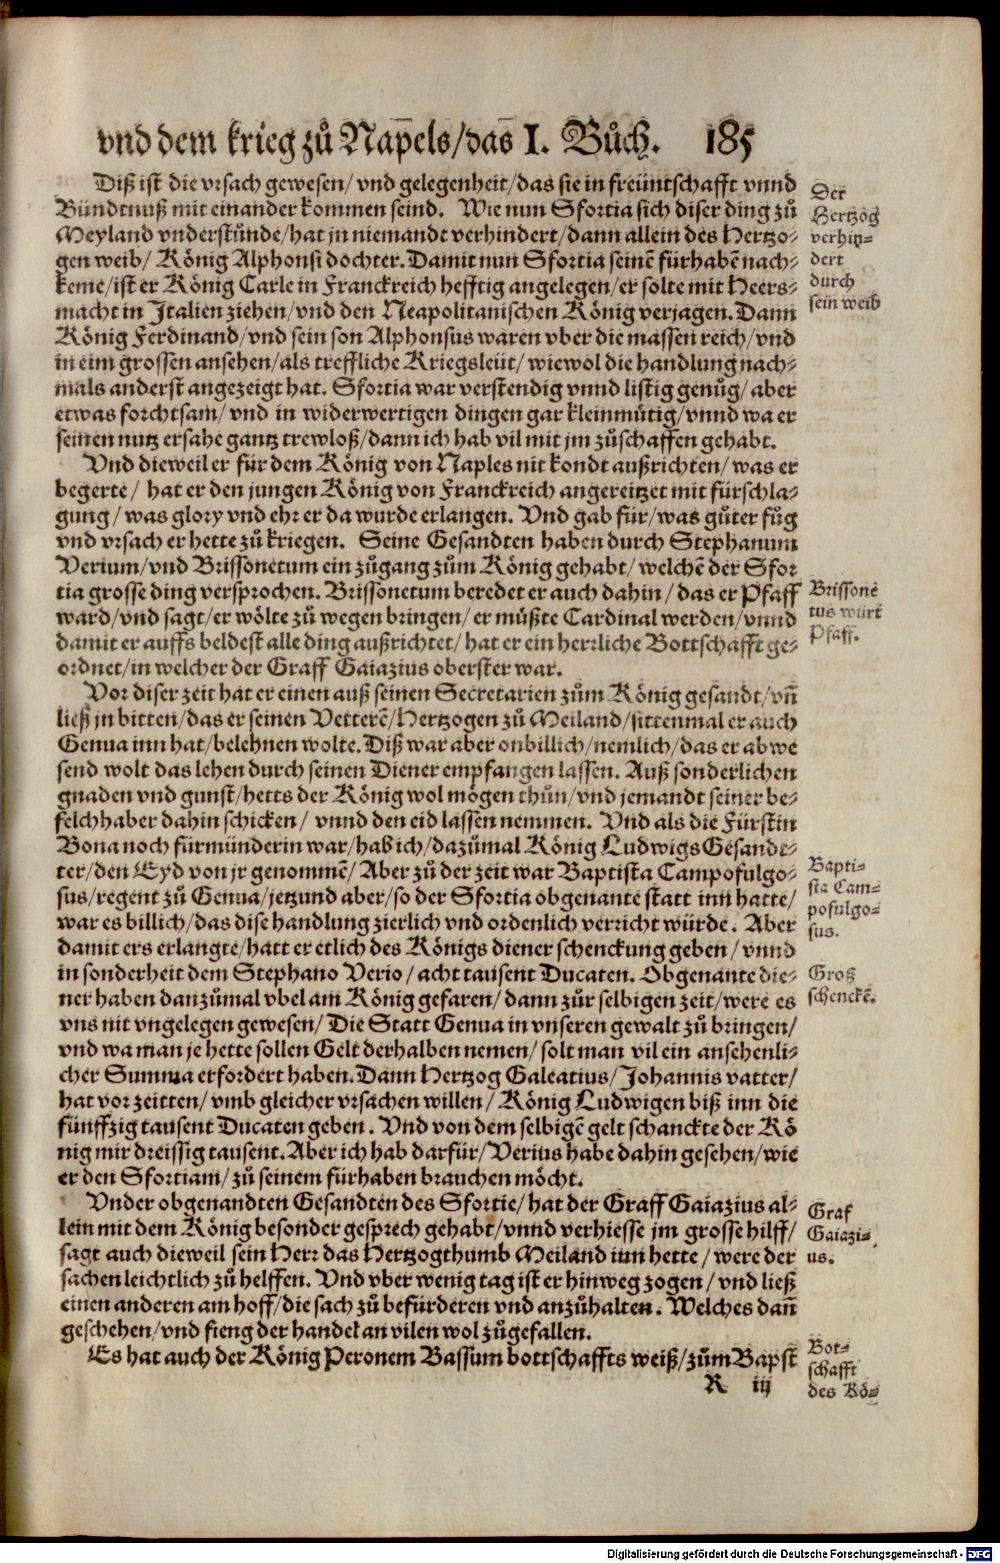 vnd dem krieg zů Nap̄els/das̄ I. Bůch. 185
Diß ist die vrsach gewesen/ vnd gelegenheit/das sie in freüntschafft vnnd
Bündtnuß mit einander kommen seind. Wie nun Sfortia sich diser ding zů
Meyland vnderstůnde/hat jn niemandt verhindert/dann allein des Hertzo-
gen weib/ König Alphonsi dochter. Damit nun Sfortia seinē fürhabē nach-
keme/ist er König Carle in Franckreich hefftig angelegen/er solte mit Heers-
macht in Italien ziehen/vnd den Neapolitanischen König verjagen. Dann
König Ferdinand/vnd sein son Alphonsus waren vber die massen reich/vnd
in eim grossen ansehen/als treffliche Kriegsleüt/ wiewol die handlung nach-
mals anderst angezeigt hat. Sfortia war verstendig vnnd listig genůg/ aber
etwas forchtsam/ vnd in widerwertigen dingen gar kleinmütig/vnnd wa er
seinen nutz ersahe gantz trewloß/dann ich hab vil mit jm zůschaffen gehabt.
Vnd dieweil er für dem König von Naples nit kondt außrichten/ was er
begerte/ hat er den jungen König von Franckreich angereitzet mit fürschla-
gung/ was glory vnd ehr er da wurde erlangen. Vnd gab für/was gůter fůg
vnd vrsach er hette zů kriegen. Seine Gesandten haben durch Stephanum
Verium/vnd Brissonetum ein zůgang zům König gehabt/ welchē der Sfor
tia grosse ding versprochen. Brissonetum beredet er auch dahin/ das er Pfaff
ward/vnd sagt/er wölte zů wegen bringen/ er müßte Cardinal werden/vnnd
damit er auffs beldest alle ding außrichtet/ hat er ein herrliche Bottschafft ge-
ordnet/in welcher der Graff Gaiazius oberster war.
Vor diser zeit hat er einen auß seinen Secretarien zům König gesandt/vn̄
ließ jn bitten/das er seinen Vetterē/Hertzogen zů Meiland/sittenmal er auch
Genua inn hat/belehnen wolte. Diß war aber onbillich/nemlich/das er abwe
send wolt das lehen durch seinen Diener empfangen lassen. Auß sonderlichen
gnaden vnd gunst/hetts der König wol mögen thůn/vnd jemandt seiner be-
felchhaber dahin schicken/ vnnd den eid lassen nemmen. Vnd als die Fürstin
Bona noch fürmünderin war/hab ich/dazůmal König Ludwigs Gesand-
ter/den Eyd von jr genommē/ Aber zů der zeit war Baptista Campofulgo-
sus/regent zů Genua/jetzund aber/so der Sfortia obgenante statt inn hatte/
war es billich/das dise handlung zierlich vnd ordenlich verricht würde. Aber
damit ers erlangte/hatt er etlich des Königs diener schenckung geben/ vnnd
in sonderheit dem Stephano Verio/ acht tausent Ducaten. Obgenante die-
ner haben danzůmal vbel am König gefaren/ dann zůr selbigen zeit/were es
vns nit vngelegen gewesen/ Die Statt Genua in vnseren gewalt zů bringen/
vnd wa man je hette sollen Gelt derhalben nemen/ solt man vil ein ansehenli-
cher Summa erfordert haben. Dann Hertzog Galeatius/Johannis vatter/
hat vor zeitten/ vmb gleicher vrsachen willen/ König Ludwigen biß inn die
fünffzig tausent Ducaten geben. Vnd von dem selbigē gelt schanckte der Kö
nig mir dreissig tausent. Aber ich hab darfür/Verius habe dahin gesehen/wie
er den Sfortiam/ zů seinem fürhaben brauchen möcht.
Vnder obgenandten Gesandten des Sfortie/ hat der Graff Gaiazius al-
lein mit dem König besonder gesprech gehabt/vnnd verhiesse jm grosse hilff/
sagt auch dieweil sein Herr das Hertzogthumb Meiland inn hette/ were der
sachen leichtlich zů helffen. Vnd vber wenig tag ist er hinweg zogen/ vnd ließ
einen anderen am hoff/die sach zů befürderen vnd anzůhalten. Welches dan̄
geschehen/vnd fieng der handel an vilen wol zůgefallen.
Es hat auch der König Peronem Bassum bottschaffts weiß/zům Bapst
R iij
Der
Hertzog
verhin-
dert
durch
sein weib
Brissone
tus würt
Pfaff.
Bapti-
sta Cam-
pofulgo-
sus.
Groß
schenckē.
Graf
Gaiazi-
us.
Bot-
schafft
des Kö-
Digitalisierung gefördert durch die Deutsche Forschungsgemeinschaft - DFG